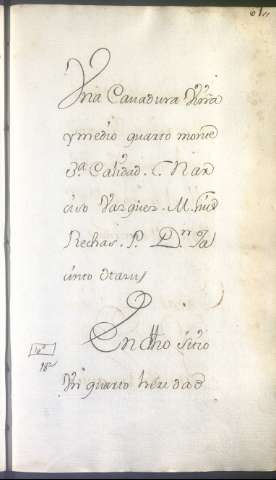 61
Una Cavadura
y medio quarto monte
3ª Calidad. C. Nar
ciso Vazquez. M.
Rechas. P. Dn Ja
cinto Otarus
En dho sitio
Un quarto heredad